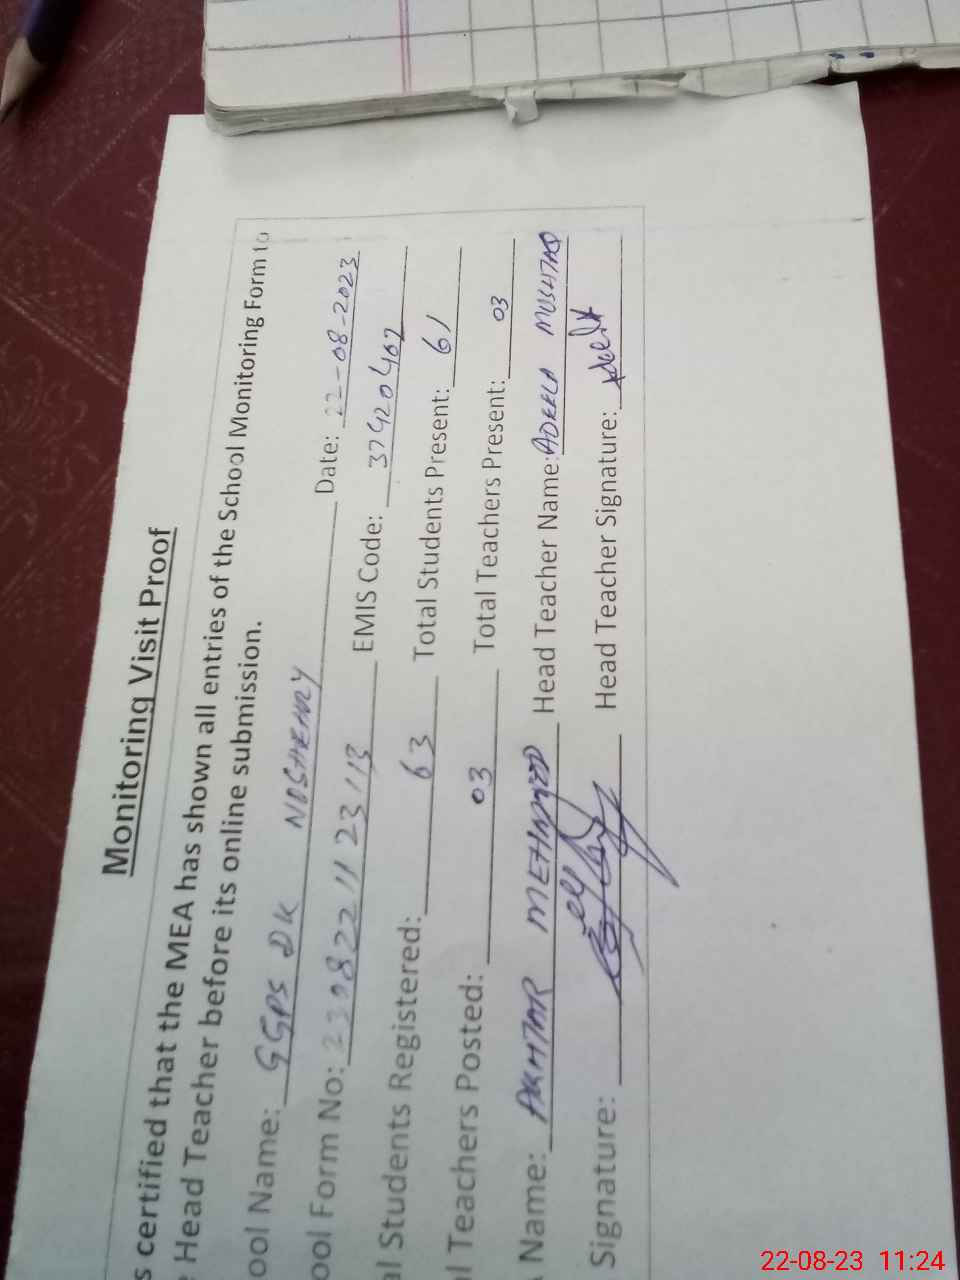 Monitoring Visit Proof
s certified that the MEA has shown all entries of the School Monitoring Form to
e Head Teacher before its online submission.
ool Name: GGPS DK NOSHEHRY Date: 22-08-2023
ool Form No: 2308221123113 EMIS Code: 37420402
al Students Registered: 63 Total Students Present: 61
l Teachers Posted: 03 Total Teachers Present: 03
Name: AKHTAR MEHMOOD Head Teacher Name: ADEELA MUSHTAQ
Signature: Head Teacher Signature: Adeela
22-08-23 11:24